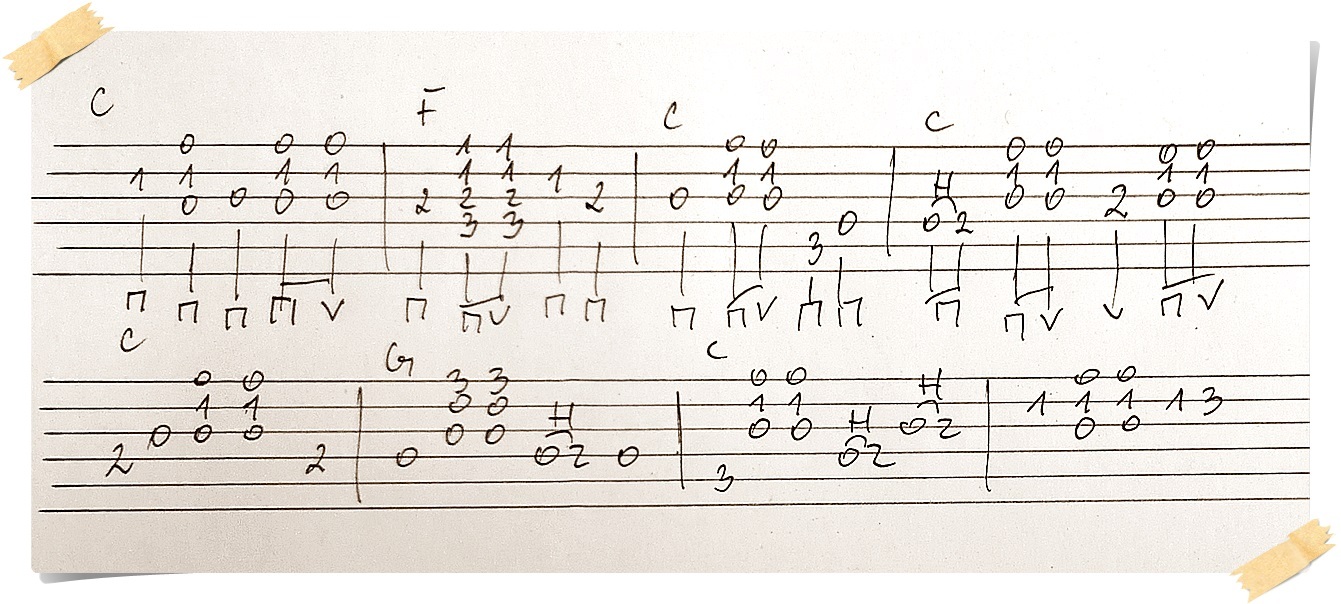 C F C C
0 0 0 1 1 0 0 0 0 0 0
1 1 1 1 1 1 1 1 1 H 1 1 1 1
0 0 0 0 2 2 2 2 0 0 0 0 0 2 0 0
3 3 0 0 2
3
П П П П V П П V П П П П V П П П П V V П V
C G C
0 0 3 3 0 0 H 0 0
1 1 0 0 H 1 1 H 1 1 1 1 3
0 0 0 0 0 0 0 0 2 0 0
2 2 0 0 2 0 0 2
3